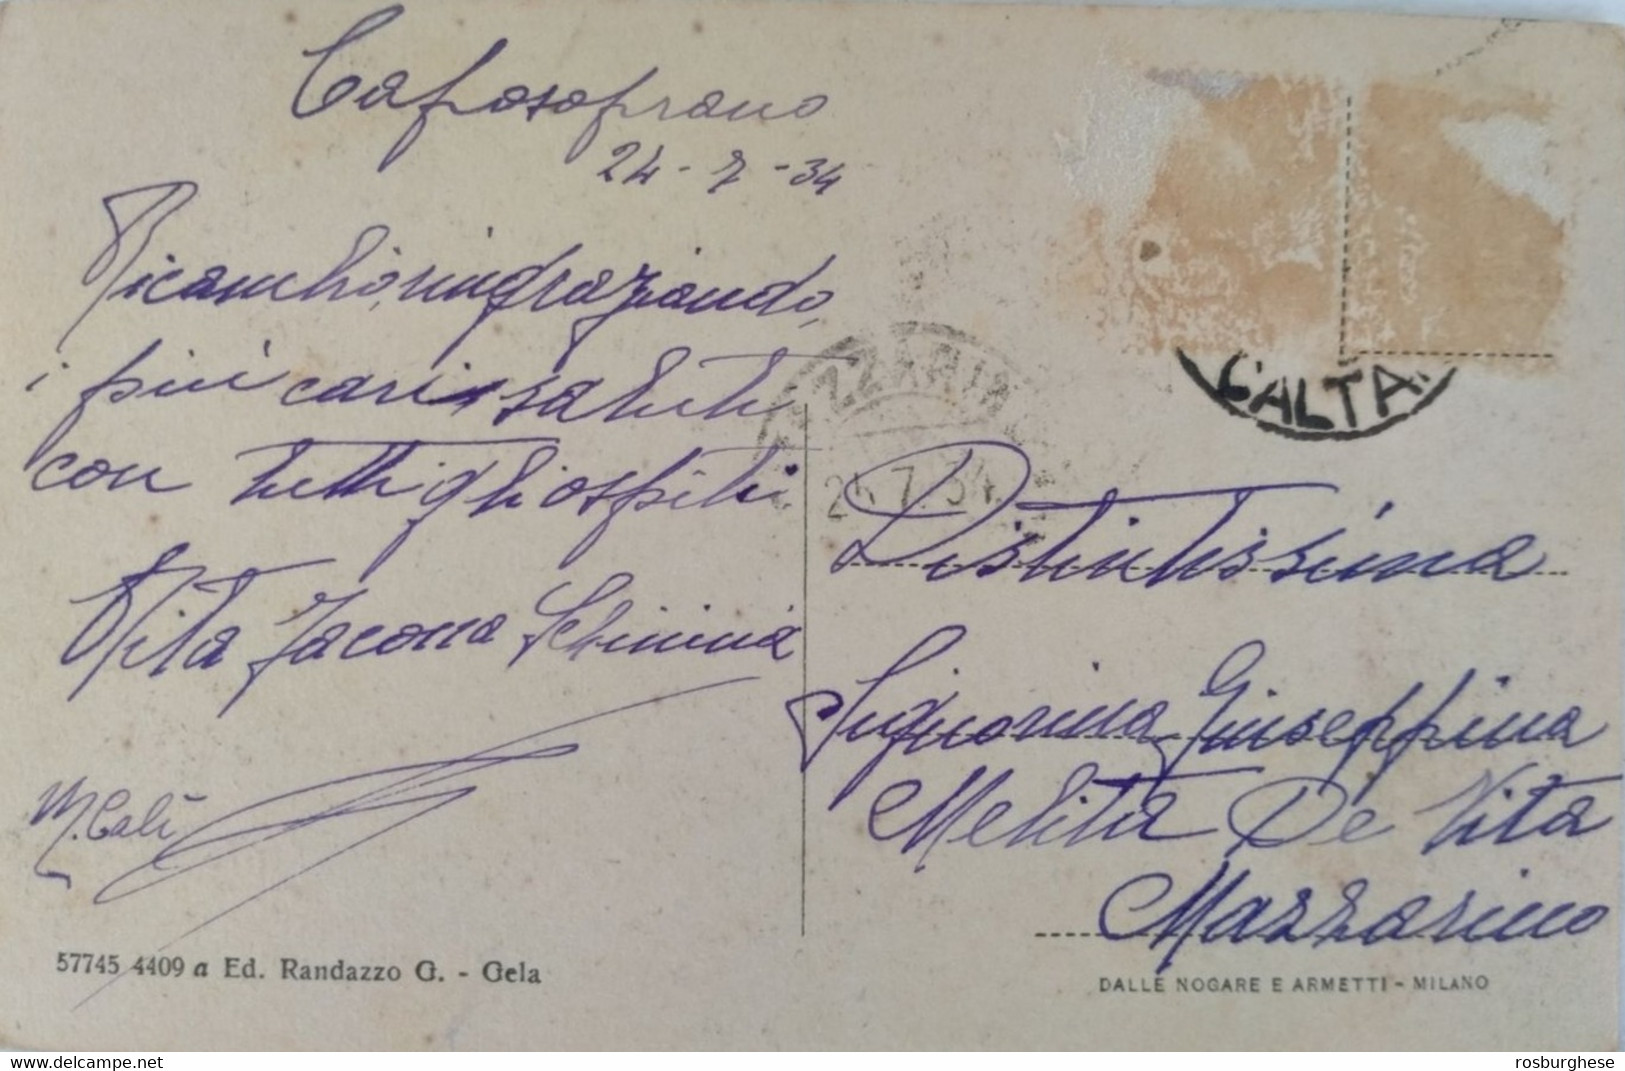 Caposoprano
24-7-34
Ricambio, ringraziando,
i più cari saluti
con tutti gli ospiti.
Vita Jacona Schininà
M. Calì
57745 4409 a Ed. Randazzo G. - Gela
ZZARIN
24 7.34
C'ALTA
Distintissima
Signorina Giuseppina
Melita De Vita
Mazzarino
DALLE NOGARE E ARMETTI - MILANO
rosburghese
delcampe.net